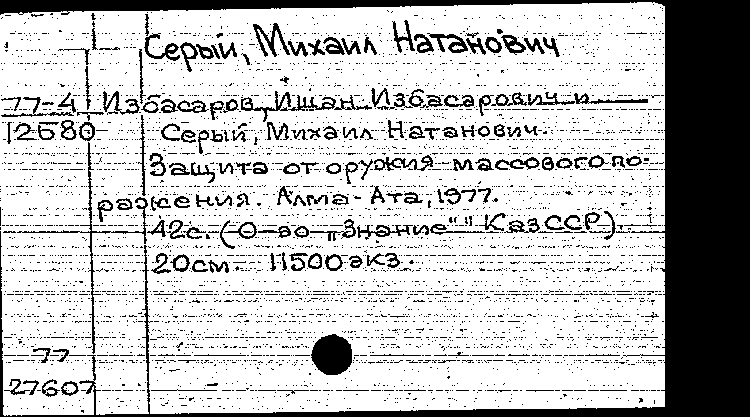 Серый, Михаил Натанович
77-4 Избасаров, Ишан Избасарович и
12580 Серый, Михаил Натанович.
Защита от оружия массового по-
ражения. Алма-Ата, 1977.
42с. (О-во „Знание“ КазССР).
20см. 11500 экз.
77
27607